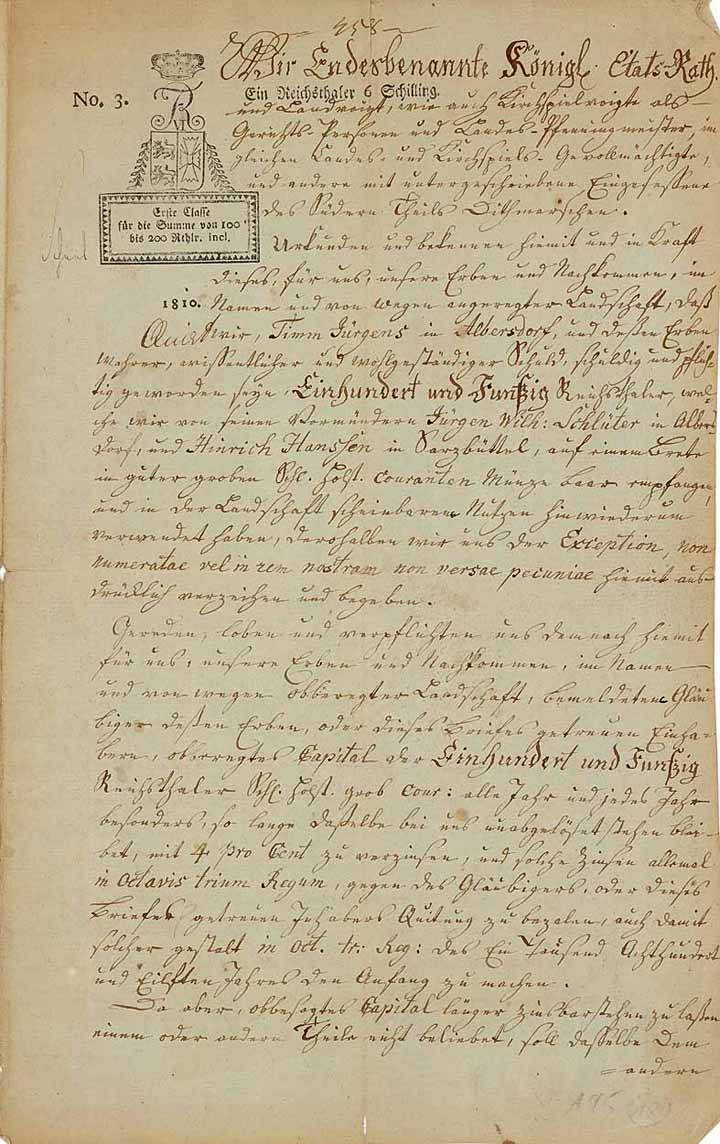 258
Wir Endesbenannte Königl. Etats-Rath
No. 3.
Ein Reichsthaler 6 Schilling.
und Landvoigt, wie auch Kirchspielvoigte als
Gerichts-Personen und Landes-Pfenningmeister, im
gleichen Landes- und Kirchspiels-Gevollmächtigte,
und andere mit untergeschriebene Eingesessene
des Südern Theils Dithmarschen.
Erste Classe
für die Summe von 100
bis 200 Rthlr. incl.
Urkunden und bekennen hiemit und in Kraft
dieses, für uns, unsere Erben und Nachkommen, im
1810.
Namen und von wegen angeregter Landschaft, daß
wir, Timm Jürgens in Albersdorf, und deßen Erben
wahrer, wissentlicher und wohlgeständiger Schuld, schuldig und pflich-
tig geworden seyn Einhundert und Funfzig Reichsthaler, wel-
che wir von seinen Vormündern Jürgen Wilh: Schlüter in Albers-
dorf, und Hinrich Hanssen in Sarzbüttel, auf einem Brete
in guter groben Schl. Holst. Couranten Münze baar empfangen,
und in der Landschaft scheinbaren Nutzen hinwiederum
verwendet haben, derohalben wir uns der Exception, non
numeratae vel in rem nostram non versae pecuniae hiemit aus-
drücklich verzeihen und begeben.
Gereden, loben und verpflichten uns demnach hiemit
für uns, unsere Erben und Nachkommen, im Namen
und von wegen obberegter Landschaft, bemeldetem Gläu
biger deßen Erben, oder dieses Briefes getreuen Einha-
bern, obberegtes Capital der Einhundert und Funfzig
Reichsthaler Schl. Holst. grob Cour: alle Jahr und jedes Jahr
besonders, so lange daßelbe bei uns unabgelöset stehen blei-
bet, mit 4 pro Cent zu verzinsen, und solche Zinsen allemal
in Octavis trium Regum, gegen des Gläubigers, oder dieses
Briefes getreuen Inhabers Quitung zu bezalen, auch damit
solcher gestalt in Oct. tr: Reg: des Ein Tausend Achthundert
und Eilften Jahres den Anfang zu machen.
Da aber, obbesagtes Capital länger zinsbar stehen zu laßen
einem oder andern Theile nicht beliebet, soll dasselbe dem
= andern